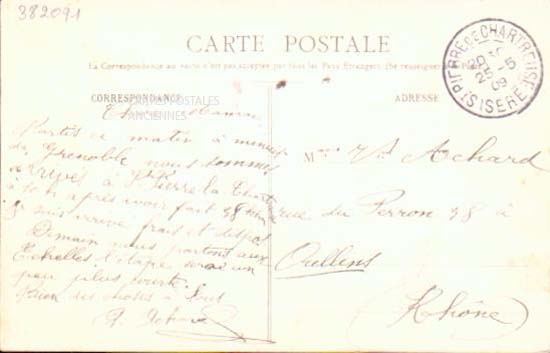 382091
CARTE POSTALE
La Correspondance au verso n'est pas acceptée par tous les Pays Etrangers. (Se renseigner à la Poste)
CORRESPONDANCE
CARTES POSTALES
ANCIENNES
ADRESSE
ST PIERRE DE CHARTREUSE
20 30
25-5
09
(ISERE)
Chère Maman
Partis ce matin à
de Grenoble nous sommes
arrivés à St Pierre la Chart
à 10 h après avoir fait 38 km
je suis arrivé frais et dispos
Demain nous partons aux
Echelles l'étape sera un
peu plus courte.
Bien des choses à tous
Mme Achard
rue du Perron 38 à
Oullins
(Rhône)